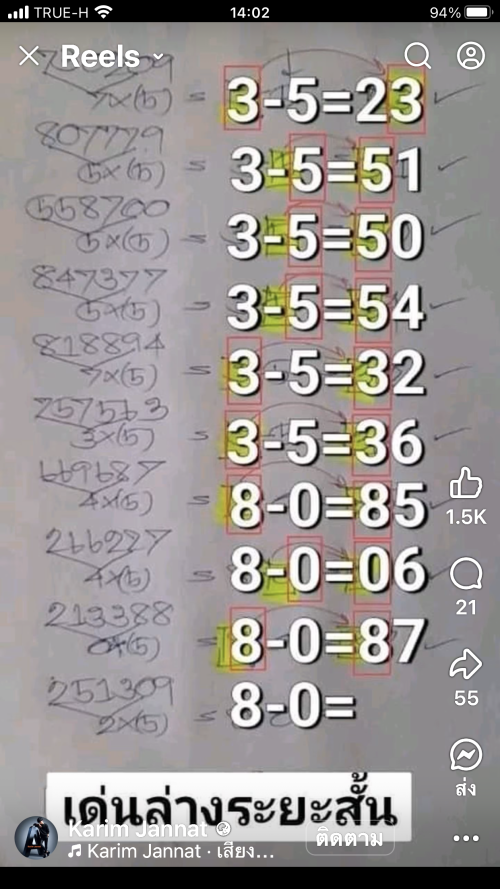 TRUE-H 14:02 94%
Reels
7×(5) = 3-5=23
807779
5×(5) = 3-5=51
558700
5×(5) = 3-5=50
847377
5×(5) = 3-5=54
818894
7×(5) = 3-5=32
757513
3×(5) = 3-5=36
669687
4×(5) = 8-0=85
1.5K
266227
4×(5) = 8-0=06
21
213388
0×(5) = 8-0=87
55
251309
2×(5) = 8-0=
ส่ง
เด่นล่างระยะสั้น
Karim Jannat
ติดตาม
Karim Jannat · เสียง...